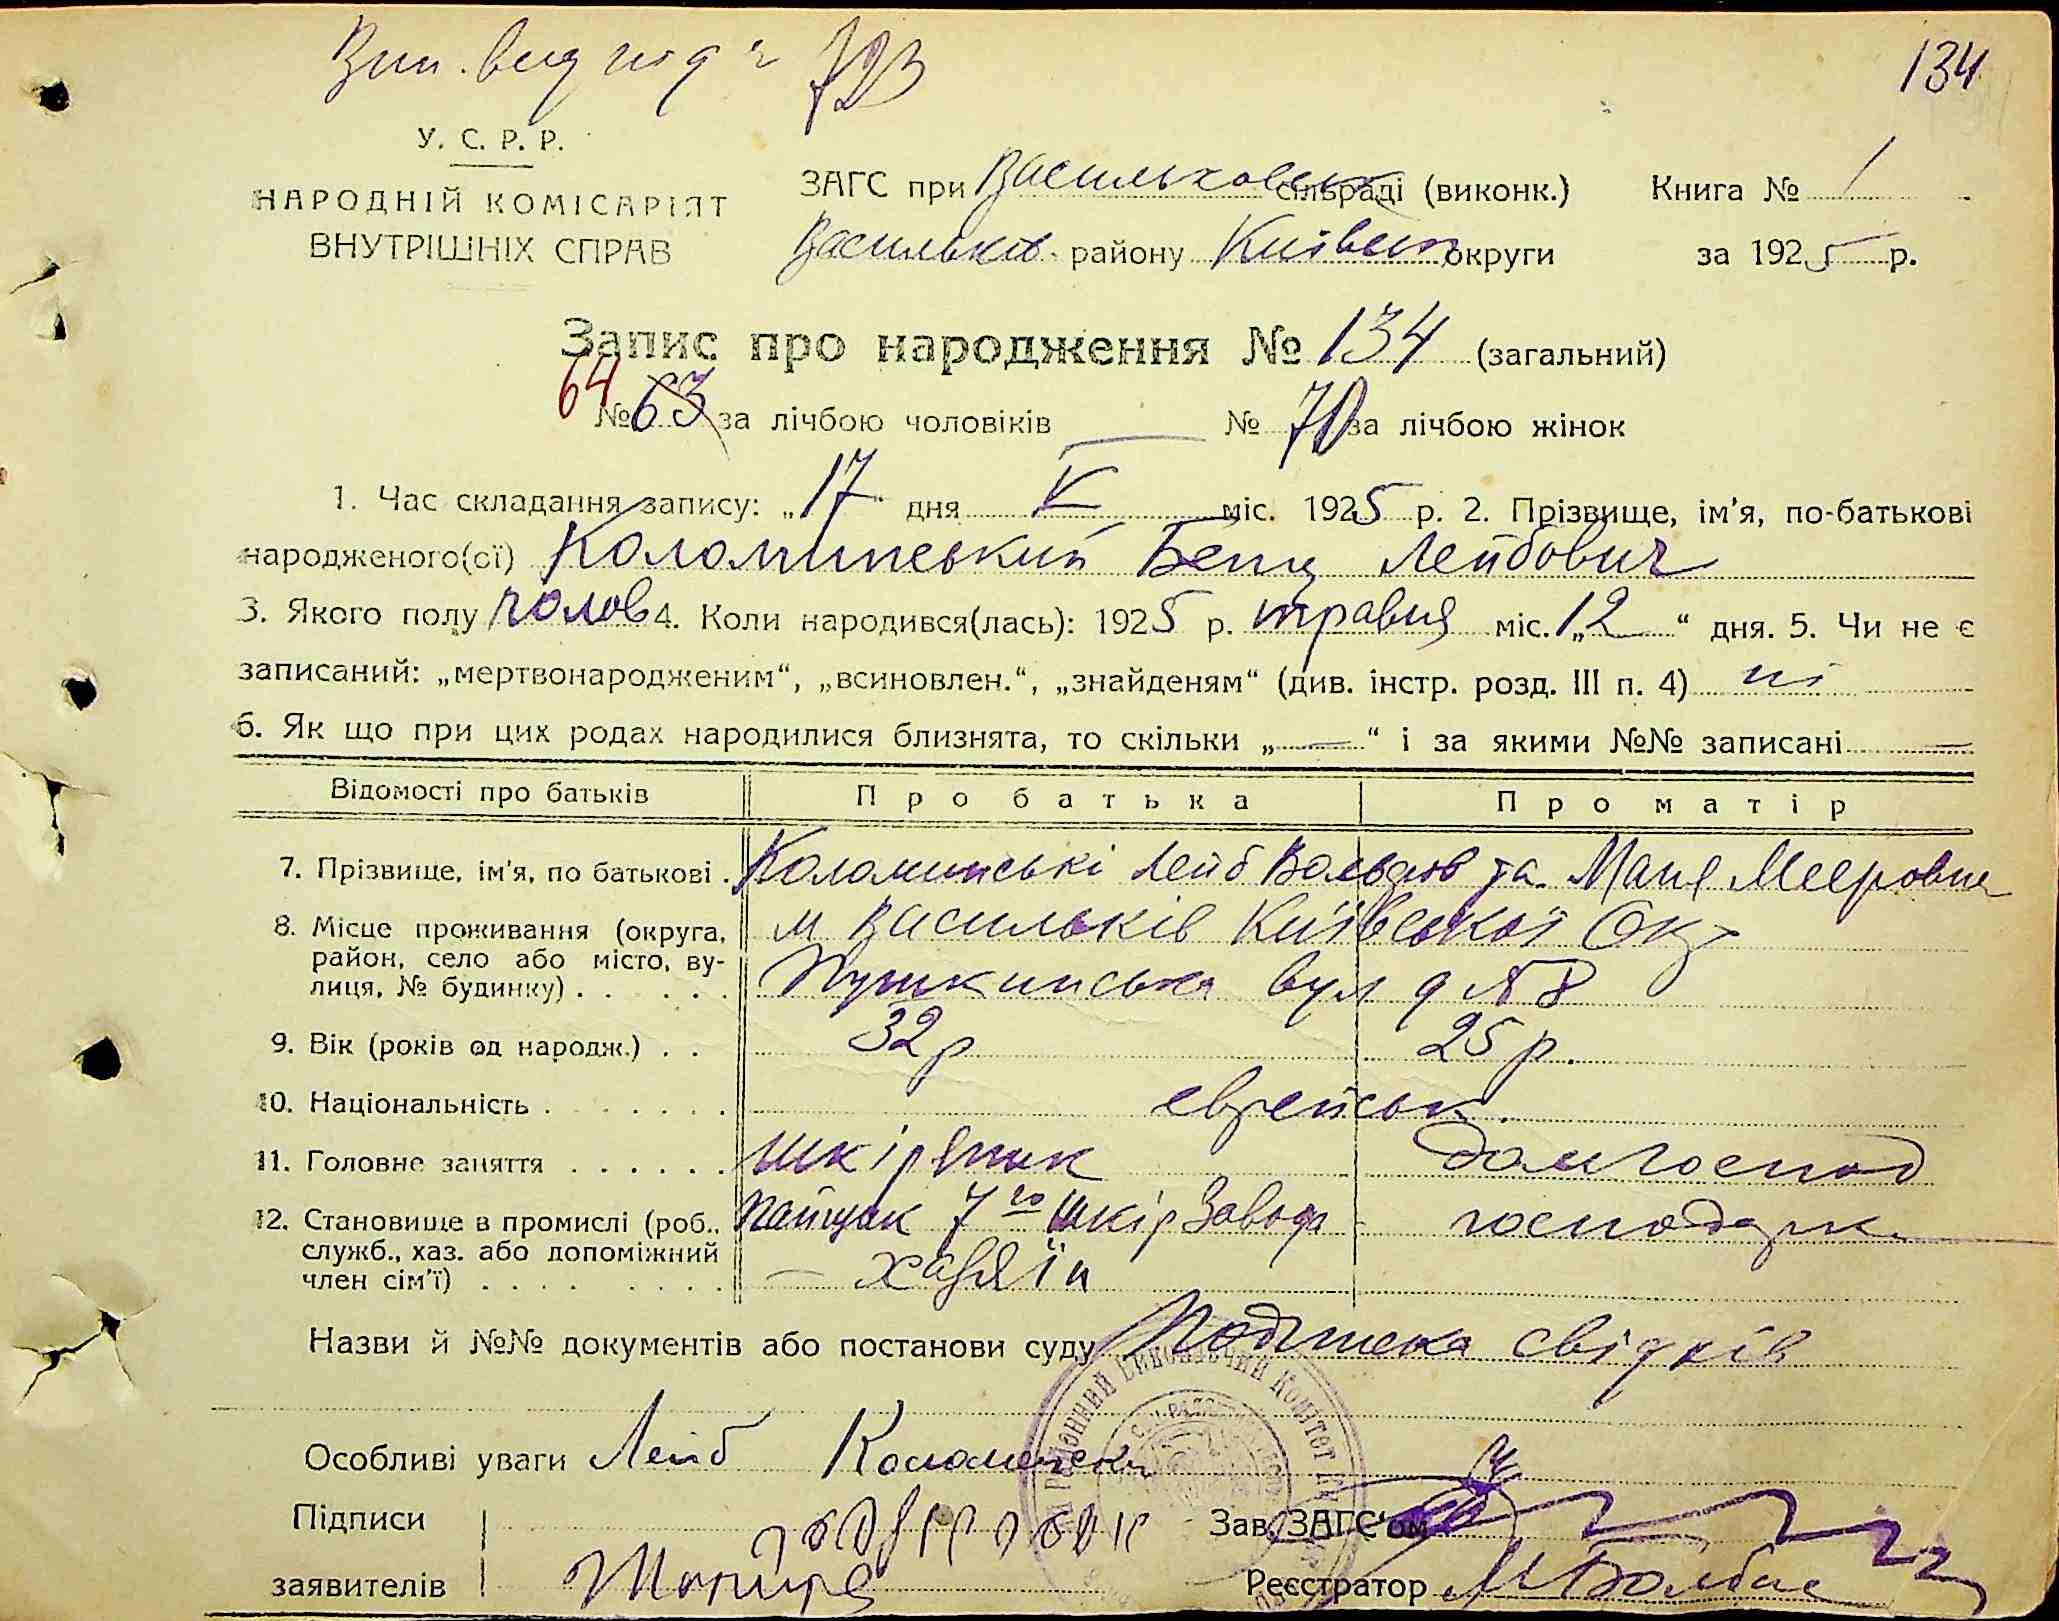 134
У. С. Р. Р.
НАРОДНІЙ КОМІСАРІЯТ
ВНУТРІШНІХ СПРАВ
ЗАГС при Васильковськ сільраді (виконк.) Книга № 1
Васильків району Київськ округи за 1925 р.
Запис про народження № 134 (загальний)
64 № 63 за лічбою чоловіків № 70 за лічбою жінок
1. Час складання запису: „17" дня V міс. 1925 р. 2. Прізвище, ім'я, по-батькові
народженого(сї) Коломинський Бенц Лейбович
3. Якого полу чолов 4. Коли народився(лась): 1925 р. травня міс. „12" дня. 5. Чи не є
записаний: „мертвонародженим", „всиновлен.", „знайденям" (див. інстр. розд. III п. 4) ні
6. Як що при цих родах народилися близнята, то скільки „—" і за якими №№ записані —
Відомості про батьків Про батька Про матір
7. Прізвище, ім'я, по батькові . Коломинські Лейб Вольдов та Маня Мееровна
8. Місце проживання (округа, район, село або місто, вулиця, № будинку) . . . . . м Васильків Київської Окр
Пушкинська вул д № 8
9. Вік (років од народж.) . . 32 р 25 р.
10. Національність . . . . . . . еврейськ.
11. Головне заняття . . . . . . шкіряник домгоспод
12. Становище в промислі (роб., служб., хаз. або допоміжний член сім'ї) . . . . . . . . Пайщик 7го шкір Завода господарк.
— хазяїн
Назви й №№ документів або постанови суду Подписка свідків
Особливі уваги Лейб Коломенский
Підписи
заявителів
Зав. ЗАГС'ом
Реєстратор